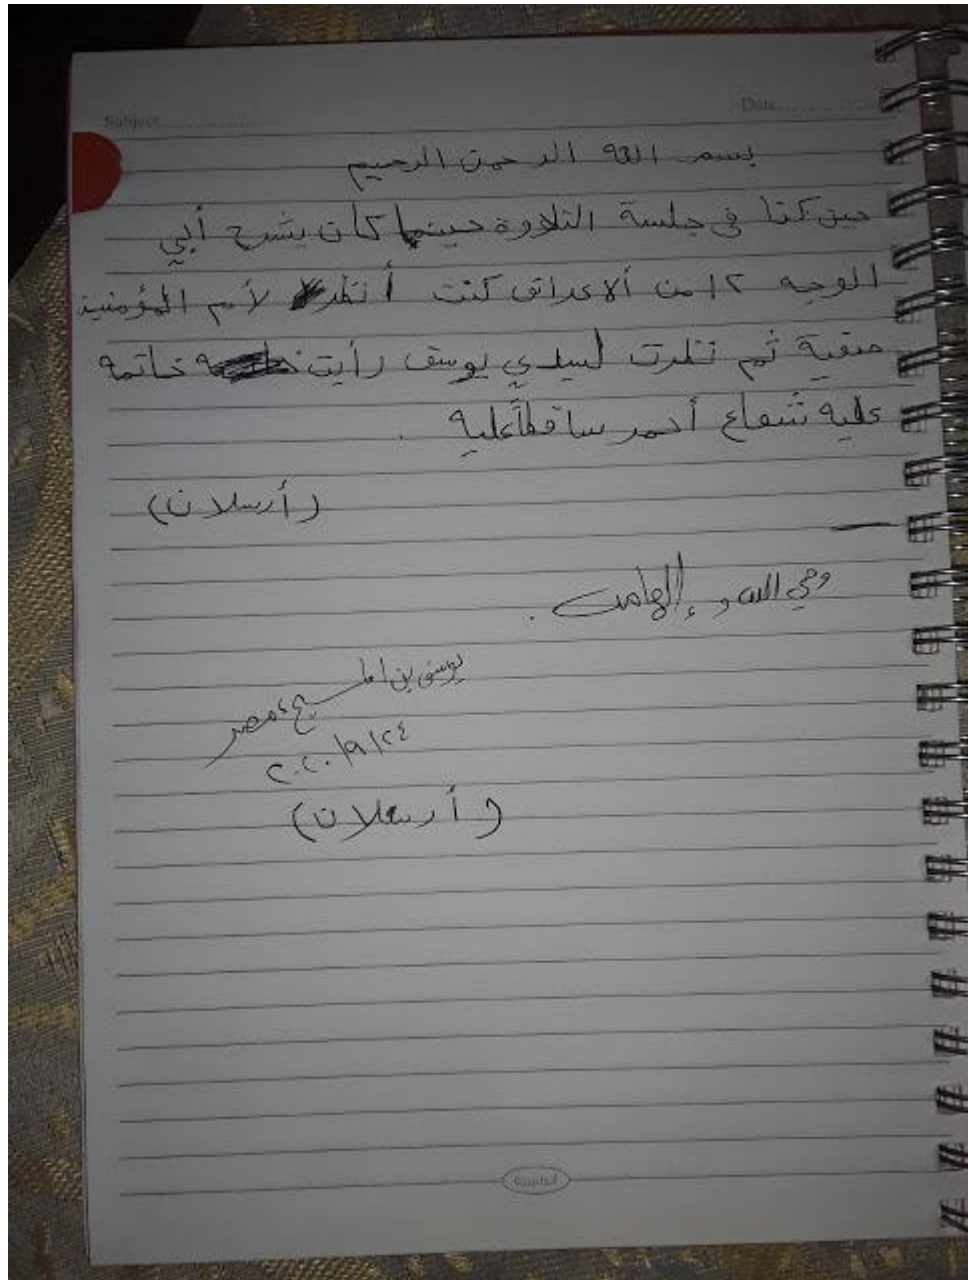 Subject
Date
بسم الله الرحمن الرحيم
حين كنا في جلسة التلاوة حينما كان يشرح أبي
الوجه ١٢ من ألاعراف كنت أنظر لأم المؤمنين
صفية ثم نظرت لسيدي يوسف رأيت خاتمه
عليه شعاع أحمر ساقطاً عليه .
(أرسلان)
وحي الله وإلهامـ .
يوسف بن المسيح ، مصر
٢٠٢٠/٩/٢٤
(أرسلان)